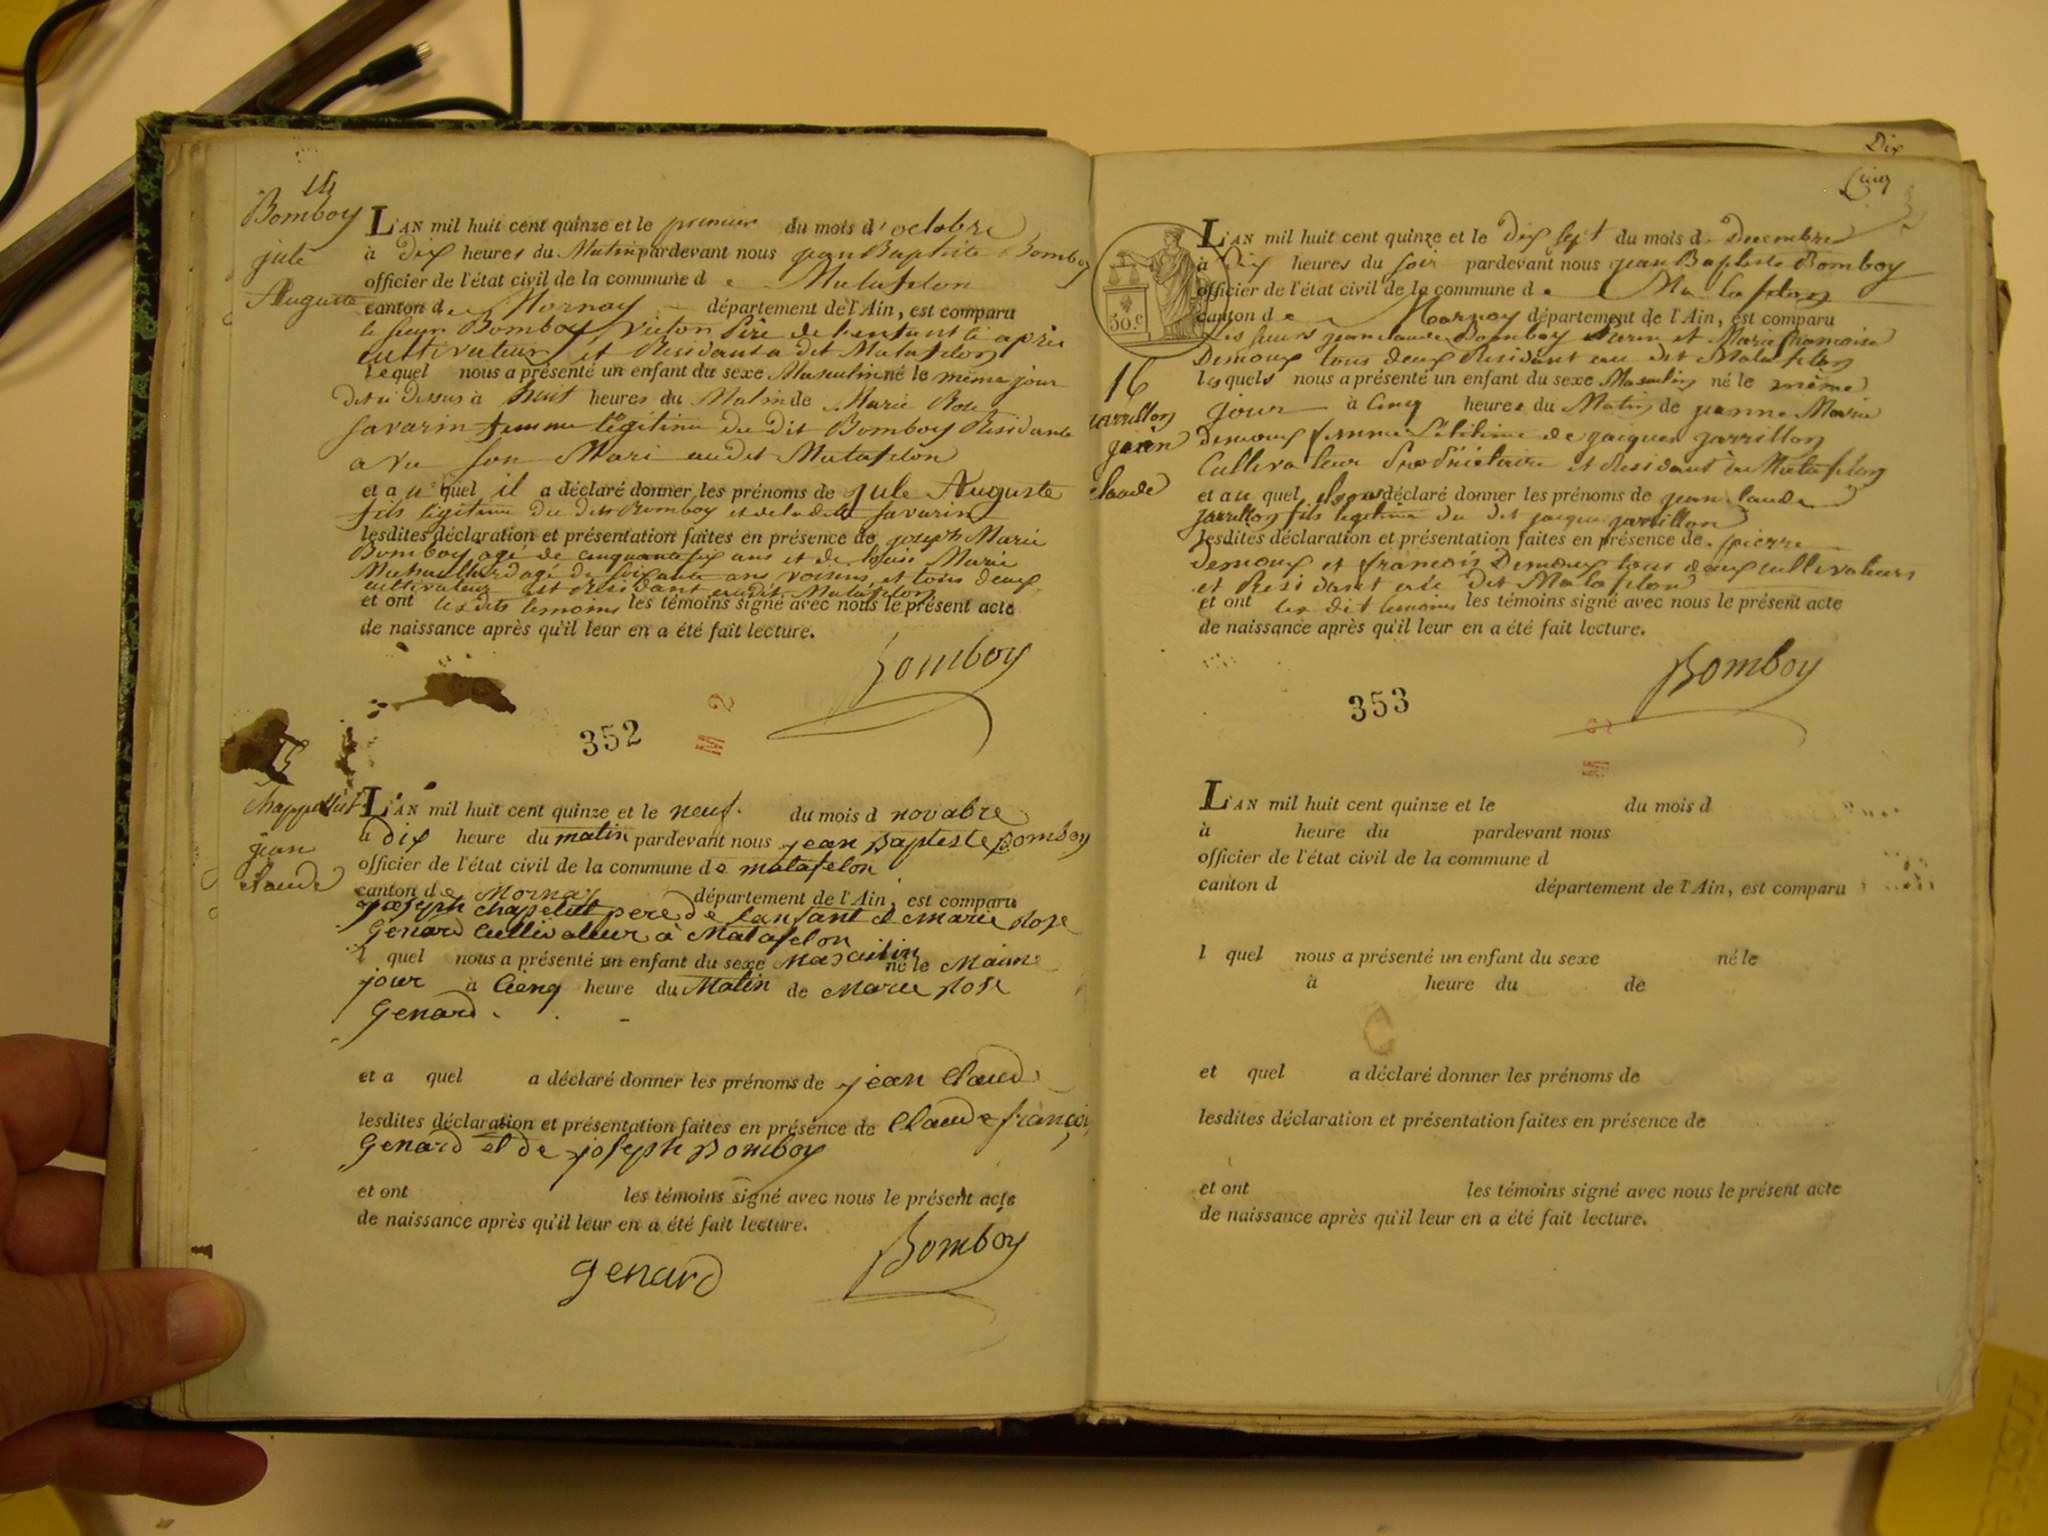 14
Bomboy
jule
Auguste
L'AN mil huit cent quinze et le premier du mois d'octobre
à Dix heures du Matin pardevant nous jean Baptiste Bomboy
officier de l'état civil de la commune de Matafelon
canton de Mornay département de l'Ain, est comparu
le sieur Bomboy, victor Père de l'enfant ci après
cultivateur et Residant a dit Matafelon
Lequel nous a présenté un enfant du sexe Masculin né le même jour
dessus à huit heures du Matin de Marie Rose
savarin femme légitime du dit Bomboy Residante
avec son Mari audit Matafelon
et au quel il a déclaré donner les prénoms de jule Auguste
fils légitime du dit Bomboy et de la dite savarin
lesdites déclaration et présentation faites en présence de joseph Marie
Bomboy agé de cinquante six ans et de louis Marie
agé de soixante ans voisins, et tous deux
cultivateur et Residant audit Matafelon
et ont lesdits temoins les témoins signé avec nous le présent acte
de naissance après qu'il leur en a été fait lecture.
Bomboy
352
M 2
15
chappellut
jean
claude
L'AN mil huit cent quinze et le neuf du mois d novabre
à dix heure du matin pardevant nous jean Baptiste Bomboy
officier de l'état civil de la commune de matafelon
canton de Mornay département de l'Ain, est comparu
joseph chapelut pere de lanfant et marie Rose
Genard Cultivateur à Matafelon
l quel nous a présenté un enfant du sexe Masculin né le Maime
jour à Cienq heure du Matin de Marie Rose
Genard.
et a quel a déclaré donner les prénoms de jean Claude
lesdites déclaration et présentation faites en présence de Claude françois
Genard et de joseph Bomboy
et ont les témoins signé avec nous le présent acte
de naissance après qu'il leur en a été fait lecture.
Genard Bomboy
Dix
Cinq
50.c
16
jarrillon
jean
claude
L'AN mil huit cent quinze et le Dix sept du mois de Decembre
à Dix heures du soir pardevant nous jean Baptiste Bomboy
officier de l'état civil de la commune de Matafelon
canton de Mornay département de l'Ain, est comparu
Les sieurs jean claude Bomboy et Marie francoise
Demoux tous deux Residant au dit Matafelon
lesquels nous a présenté un enfant du sexe Masculin né le même
jour à Cinq heures du Matin de jeanne Marie
demoux femme Letitime de jacques jarrillon
Cultivateur Proprietaire et Residant à Matafelon
et au quel ils ont déclaré donner les prénoms de jean claude
jarrillon fils legitime du dit jacque jarrillon
lesdites déclaration et présentation faites en présence de pierre
Demoux et francois Demoux tous deux cultivateurs
et Residant au dit Matafelon
et ont les dit temoins les témoins signé avec nous le présent acte
de naissance après qu'il leur en a été fait lecture.
Bomboy
353
M 2
L'AN mil huit cent quinze et le du mois d
à heure du pardevant nous
officier de l'état civil de la commune d
canton d département de l'Ain, est comparu
l quel nous a présenté un enfant du sexe né le
à heure du de
et quel a déclaré donner les prénoms de
lesdites déclaration et présentation faites en présence de
et ont les témoins signé avec nous le présent acte
de naissance après qu'il leur en a été fait lecture.